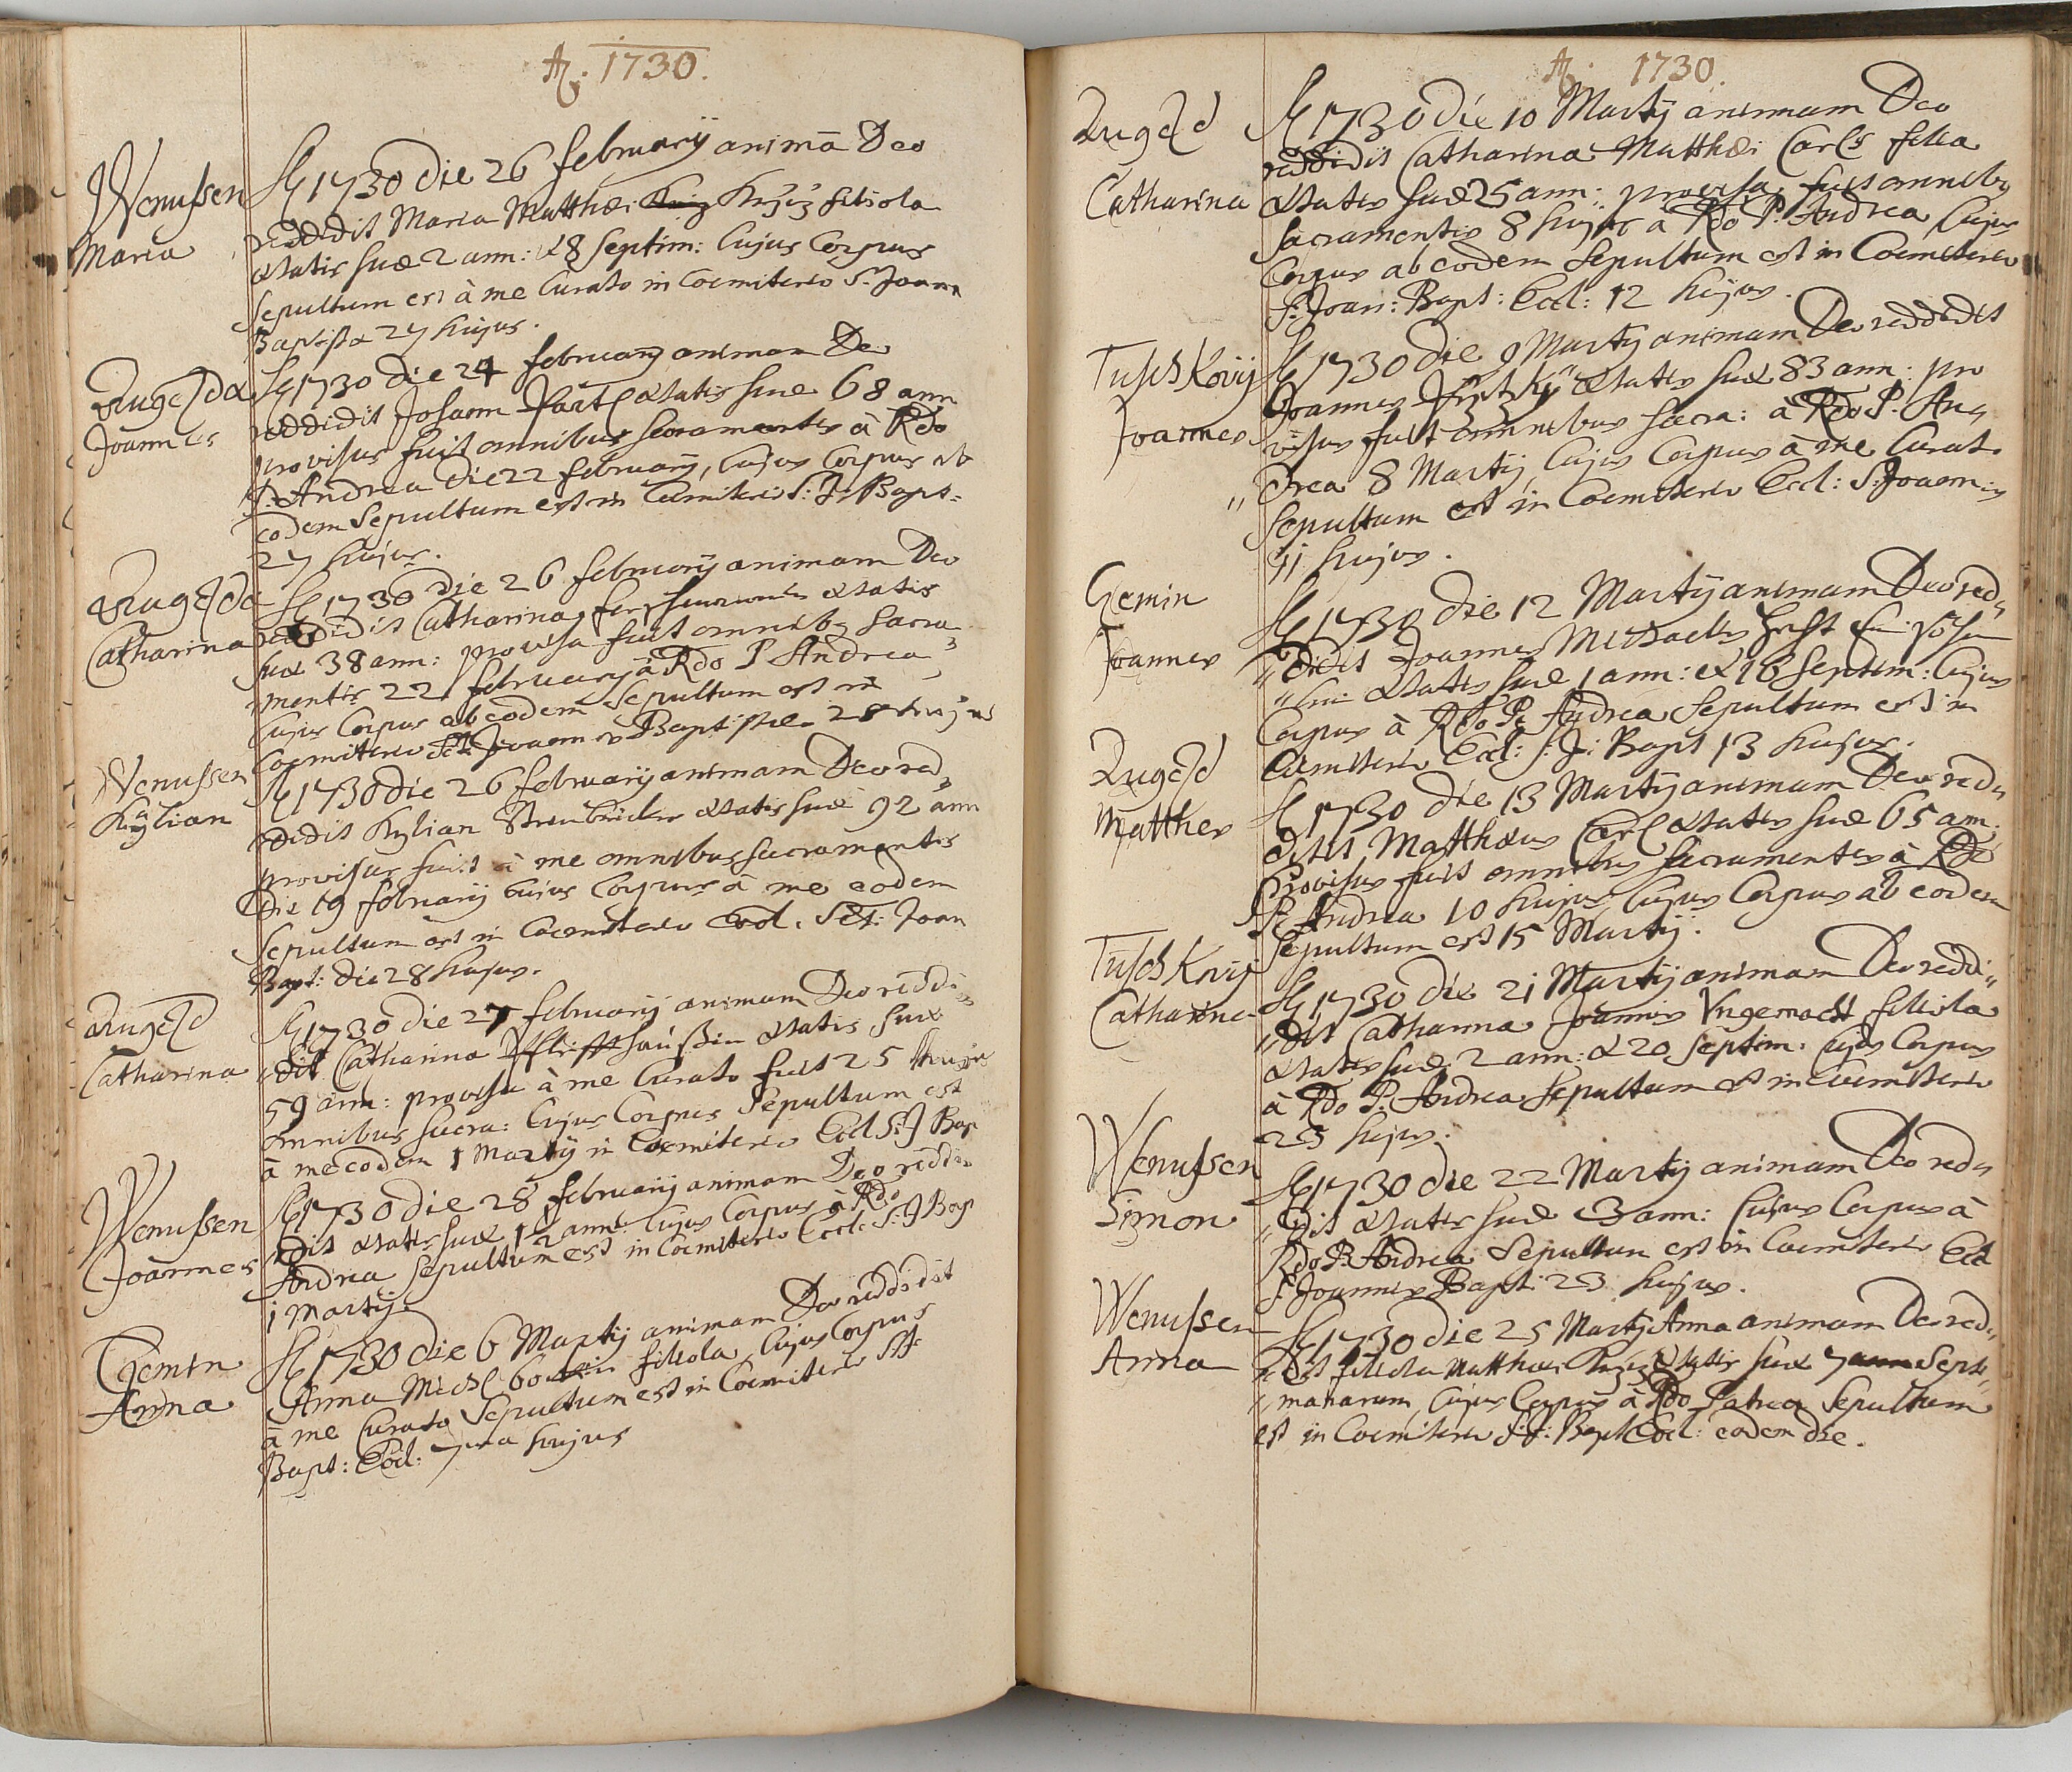 A: 1730.
Wenussen
Maria
A 1730 die 26 february animā Deo
reddidit Maria Matthæi Krziz filiola
ætatis suæ 2 ann: & 8 septim: Cujus Corpus
sepultum est à me Curato in Coemiterio S. Joann
Baptistæ 27 hujus.
Augezd
Joannes
A 1730 die 24 february animam Deo
reddidit Johann Hartl ætatis suæ 68 ann
provisus fuit omnibus sacramentis à Rdo
P. Andrea die 22 february, Cujus Corpus ab
eodem Sepultum est in Coemiterio S: J: Bapt:
27 hujus.
Augezd
Catharina
A 1730 die 26 february animam Deo
reddidit Catharina ætatis
suæ 38 ann: provisa fuit omnibq sacra-
mentis 22 february à Rdo P Andrea
Cujus Corpus ab eodem sepultum est in
Coemiterio Sti Joannis Baptistæ 28 hujus
Wenussen
Kylian
A 1730 die 26 february animam Deo red-
didit Kylian ætatis suæ 92 ann
provisus fuit à me omnibus sacramentis
Die 19 february cujus Corpus à me eodem
Sepultum est in Coemiterio Eccl. Sct: Joan
Bapt: die 28 hujus.
Augezd
Catharina
A 1730 die 27 february animam Deo reddi-
"dit Catharina ætatis suæ
59 ann: provisa à me Curato fuit 25 hujus
omnibus sacra: Cujus Corpus Sepultum est
à me eodem 1 Martÿ in Coemiterio Eccl S: J Bap
Wenussen
Joannes
A 1730 die 28 february animam Deo reddi-
dit ætatis suæ 1½ ann: Cujus Corpus à Rdo
Andrea sepultum est in Coemiterio Eccl: S: J Bap
1 Martÿ.
Czemin
Anna
A 1730 die 6 Martÿ animam Deo reddidit
Anna Michl filiola, Cujus Corpus
à me Curato Sepultum est in Coemiterio S J
Bapt: Eccl: 7ma hujus
A: 1730.
Augezd
Catharina
A 1730 die 10 Martÿ animam Deo
reddidit Catharina Matthæi Carls filia
ætatis suæ 25 ann: provisa fuit omnibq
Sacramentis 8 hujus à Rdo P. Andrea Cujus
Corpus ab eodem Sepultum est in Coemiterio
S. Joan: Bapt: Eccl: 12 hujus.
Tuschkovÿ
Joannes
A 1730 die 9 Martÿ animam Deo reddidit
Joannes ætatis suæ 83 ann: pro
visus fuit omnibus sacra: à Rdo P. An-
"drea 8 Martÿ, Cujus Corpus à me Curato
Sepultum est in Coemiterio Eccl: S. Joannis
11 hujus.
Czemin
Joannes
A 1730 die 12 Martÿ animam Deo red-
"didit Joannes Michaelis
ætatis suæ 1 ann: & 16 septim: Cujus
Corpus à Rdo P. Andrea sepultum est in
Coemiterio Eccl: S: J: Bapt 13 hujus.
Augezd
Matthes
A 1730 die 13 Martÿ animam Deo red-
didit Matthæus Carl ætatis suæ 65 ann:
Provisus fuit omnibus sacramentis à Rdo
P. Andrea 10 hujus, Cujus Corpus ab eodem
Sepultum est 15 Martÿ.
Tuschkovÿ
Catharina
A 1730 die 21 Martÿ animam Deo reddi-
"dit Catharina Joannis Ungemacht filiola
ætatis suæ 2 ann: & 20 septim. Cujus Corpus
à Rdo P. Andrea sepultum est in Coemiterio
23 hujus.
Wenussen
Simon
A 1730 die 22 Martÿ animam Deo red-
"didit ætatis suæ 3 ann: Cujus Corpus à
Rdo P. Andrea Sepultum est in Coemiterio Eccl
S. Joannis Bapt: 23 hujus.
Wenussen
Anna
A 1730 die 25 Martÿ Anna animam Deo red-
didit filiola Matthæi Krziz ætatis suæ 7 ann Septi-
"manarum, Cujus Corpus à Rdo Patre Sepultum
est in Coemiterio S: J: Bapt Eccl: eodem die.